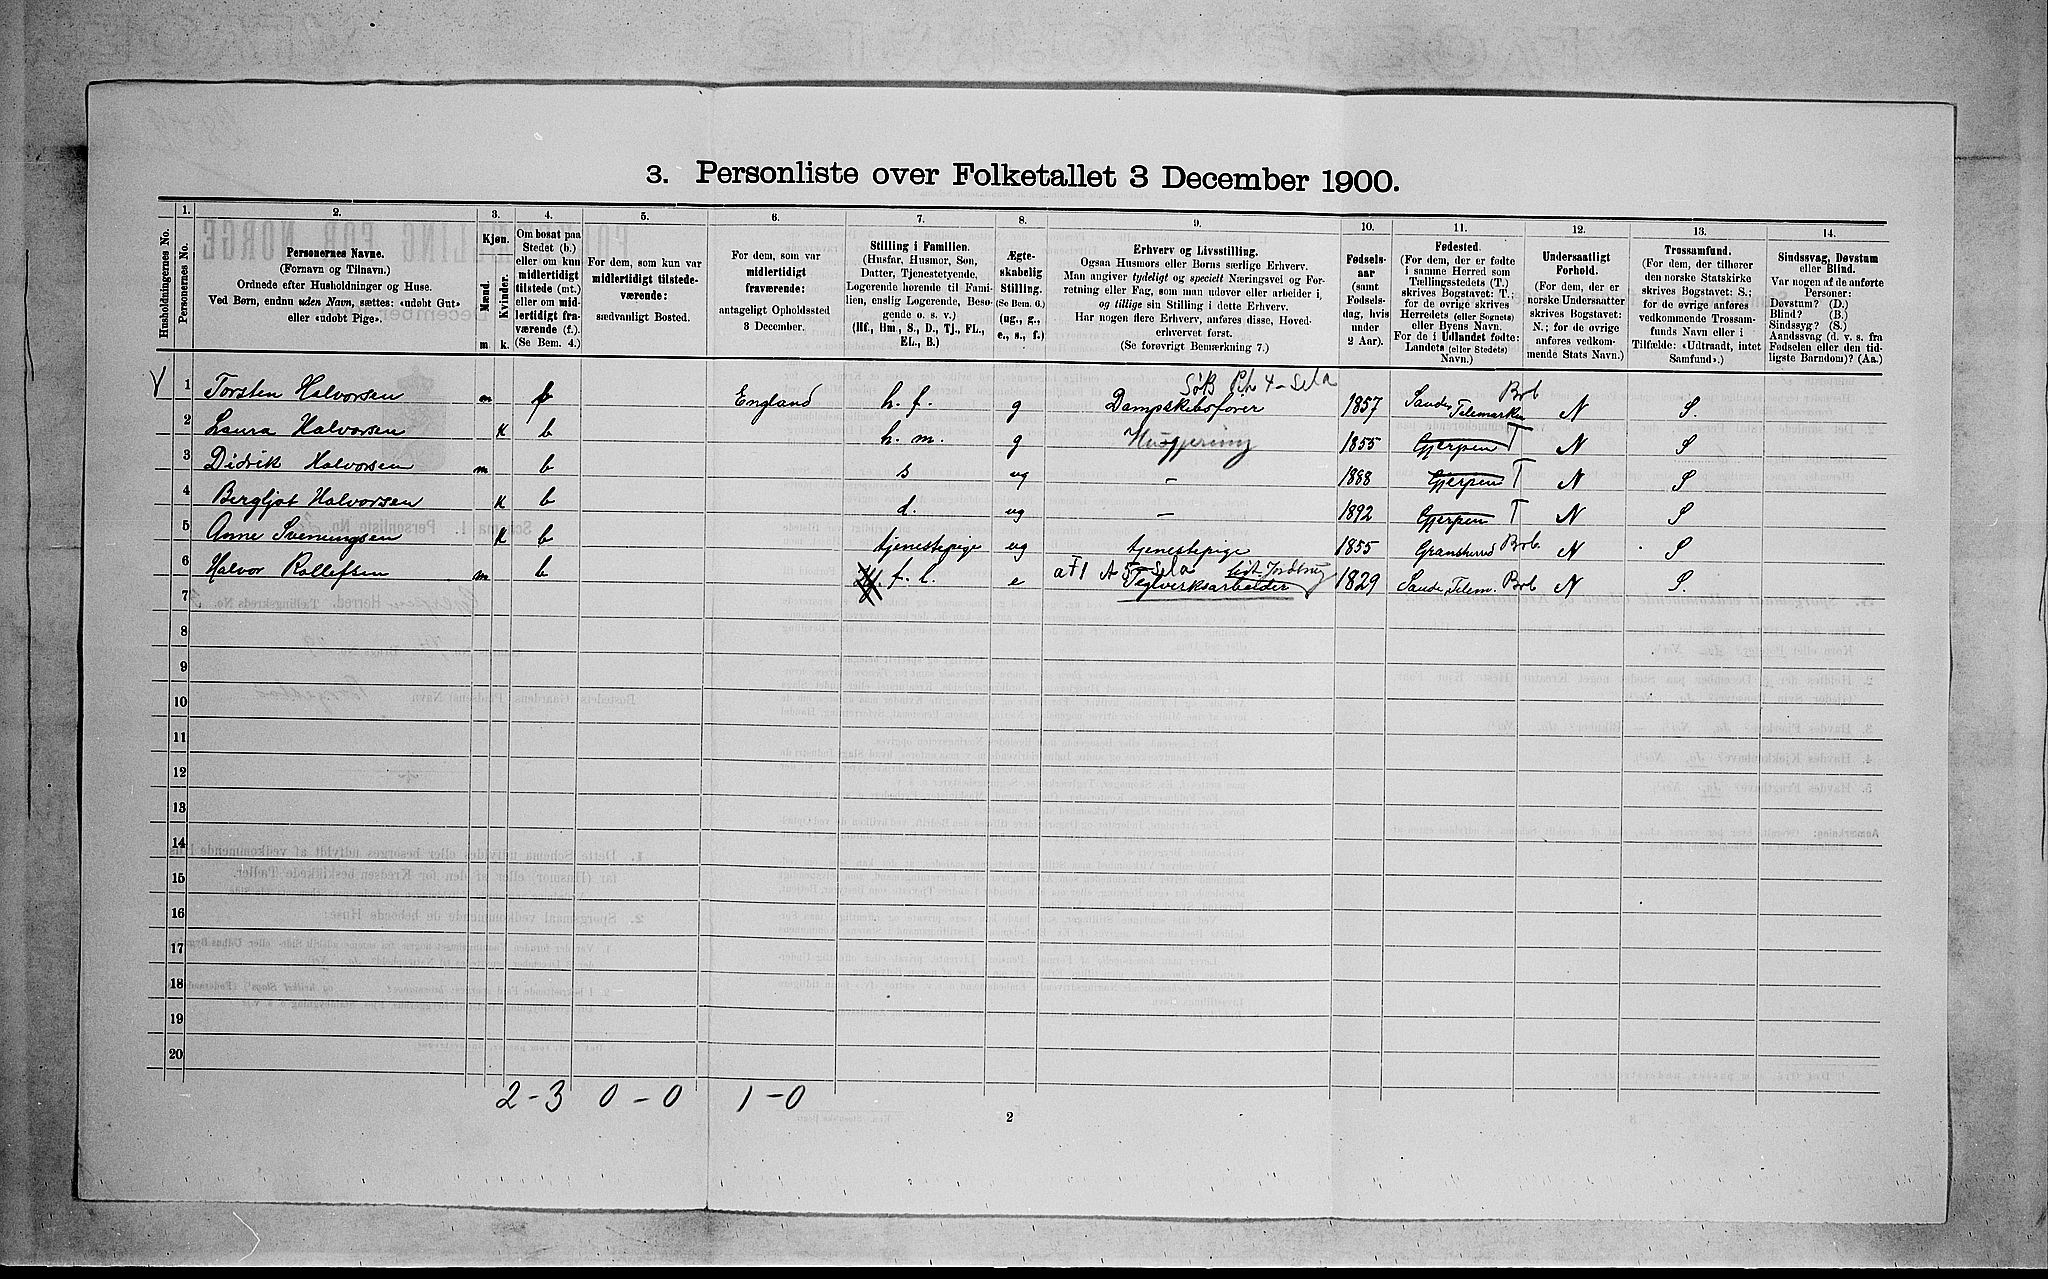 3. Personliste over Folketallet 3 December 1900.
1. 2. 3. 4. 5. 6. 7. 8. 9. 10. 11. 12. 13. 14.
Husholdningernes No.
Personernes No.
Personernes Navne.
(Fornavn og Tilnavn.)
Ordnede efter Husholdninger og Huse.
Ved Børn, endnu uden Navn, sættes: «udøbt Gut»
eller «udøbt Pige».
Kjøn.
Mænd.
Kvinder.
m. k.
Om bosat paa
Stedet (b.)
eller om kun
midlertidigt
tilstede (mt.)
eller om mid-
lertidigt fra-
værende (f.)
(Se Bem. 4.)
For dem, som kun var
midlertidigt tilstede-
værende:
sædvanligt Bosted.
For dem, som var
midlertidigt
fraværende:
antageligt Opholdssted
3 December.
Stilling i Familien.
(Husfar, Husmor, Søn,
Datter, Tjenestetyende,
Logerende hørende til Fami-
lien, enslig Logerende, Besø-
gende o. s. v.)
(Hf., Hm., S., D., Tj., FL.,
EL., B.)
Ægte-
skabelig
Stilling.
(Se Bem. 6.)
(ug., g.,
e., s., f.)
Erhverv og Livsstilling.
Ogsaa Husmors eller Børns særlige Erhverv.
Man angiver tydeligt og specielt Næringsvei og For-
retning eller Fag, som man udøver eller arbeider i,
og tillige sin Stilling i dette Erhverv.
Har nogen flere Erhverv, anføres disse, Hoved-
erhvervet først.
(Se forøvrigt Bemærkning 7.)
Fødsels-
aar
(samt
Fødsels-
dag, hvis
under
2 Aar).
Fødested.
(For dem, der er fødte
i samme Herred som
Tællingsstedets (T.)
skrives Bogstavet: T.;
for de øvrige skrives
Herredets (eller Sognets)
eller Byens Navn.
For de i Udlandet fødte:
Landets (eller Stedets)
Navn.)
Undersaatligt
Forhold.
(For dem, der er
norske Undersaatter
skrives Bogstavet:
N.; for de øvrige
anføres vedkom-
mende Stats Navn.)
Trossamfund.
(For dem, der tilhører
den norske Statskirke
skrives Bogstavet: S.;
for de øvrige anføres
vedkommende Trossam-
funds Navn eller i
Tilfælde: «Udtraadt, intet
Samfund».)
Sindssvag, Døvstum
eller Blind.
Var nogen af de anførte
Personer:
Døvstum? (D.)
Blind? (B.)
Sindssyg? (S.)
Aandssvag (d. v. s. fra
Fødselen eller den tid-
ligste Barndom)? (Aa.)
1 Torsten Halvorsen m England h. f. g Dampskibsfører 1857 Saude, Telemarken N S.
2 Laura Halvorsen k b h. m. g Husgjerning 1855 Gjerpen T N S
3 Didrik Halvorsen m b s ug - 1888 Gjerpen T N S
4 Bergljot Halvorsen k b d. ug - 1892 Gjerpen T N S
5 Anne Sveningsen k b tjenestepige ug tjenestepige 1855 Gransherred N S
6 Halvor Rollefsen m b f. l. e Teglverksarbeider 1829 Saude, Telem. N S.
7
8
9
10
11
12
13
14
15
16
17
18
19
20
2-3 0-0 1-0
2